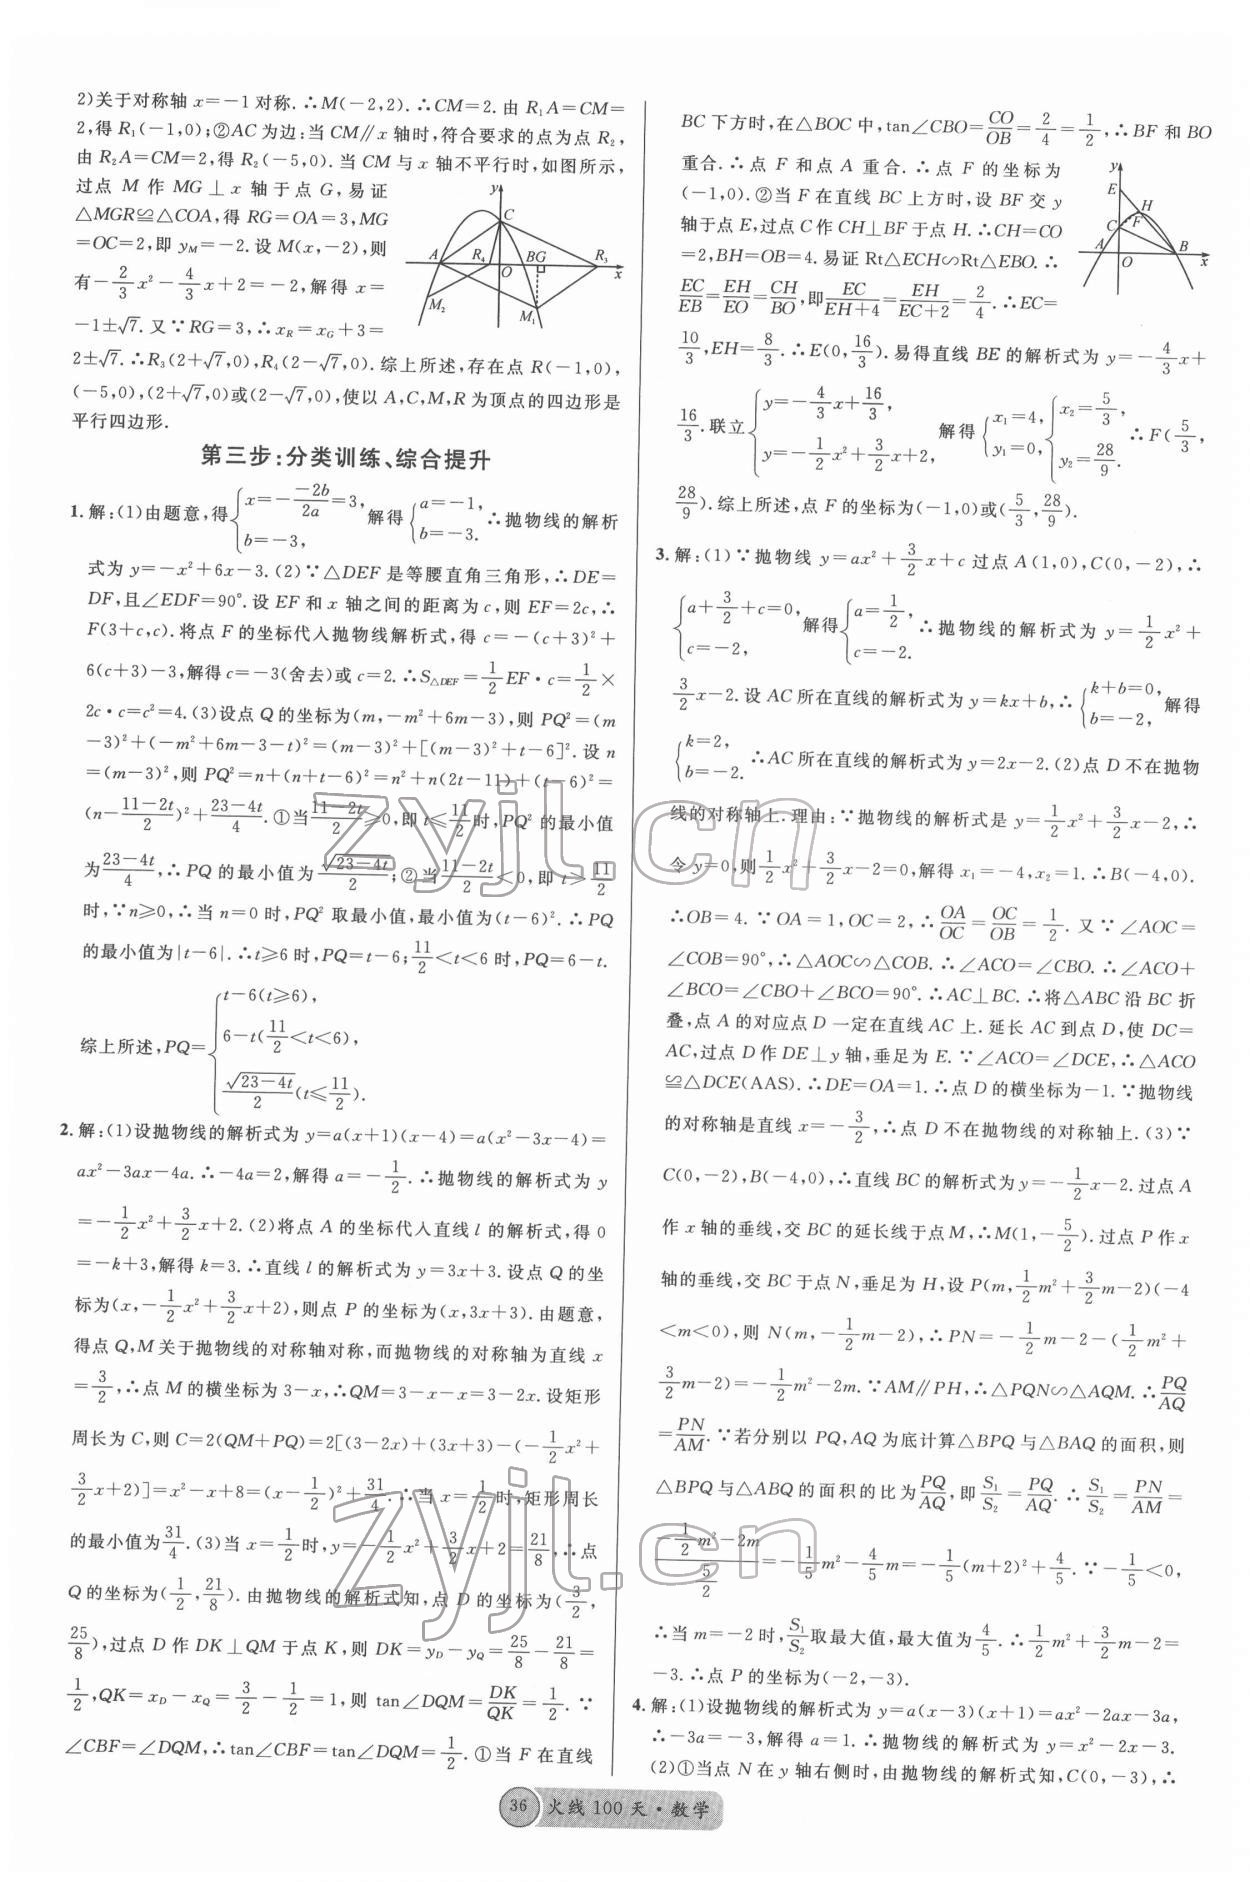 2)关于对称轴 x=-1 对称. ∴M(-2,2). ∴CM=2. 由 R₁A=CM=
2,得 R₁(-1,0);②AC 为边:当 CM∥x 轴时,符合要求的点为点 R₂,
由 R₂A=CM=2,得 R₂(-5,0). 当 CM 与 x 轴不平行时,如图所示,
过点 M 作 MG⊥x 轴于点 G,易证
△MGR≌△COA,得 RG=OA=3,MG
=OC=2,即 y_M=-2. 设 M(x,-2),则
有-2/3x²-4/3x+2=-2,解得 x=
-1±√7. 又∵RG=3,∴x_R=x_G+3=
2±√7. ∴R₃(2+√7,0),R₄(2-√7,0). 综上所述,存在点 R(-1,0),
(-5,0),(2+√7,0)或(2-√7,0),使以 A,C,M,R 为顶点的四边形是
平行四边形.
y
C
A
R₄
O
BG
R₃
x
M₂
M₁
第三步:分类训练、综合提升
1. 解:(1)由题意,得{x=-(-2b)/2a=3, b=-3, 解得{a=-1, b=-3. ∴抛物线的解析
式为 y=-x²+6x-3. (2)∵△DEF 是等腰直角三角形,∴DE=
DF,且∠EDF=90°. 设 EF 和 x 轴之间的距离为 c,则 EF=2c,∴
F(3+c,c). 将点 F 的坐标代入抛物线解析式,得 c=-(c+3)²+
6(c+3)-3,解得 c=-3(舍去)或 c=2. ∴S△DEF=1/2EF·c=1/2×
2c·c=c²=4. (3)设点 Q 的坐标为(m,-m²+6m-3),则 PQ²=(m
-3)²+(-m²+6m-3-t)²=(m-3)²+[(m-3)²+t-6]². 设 n
=(m-3)²,则 PQ²=n+(n+t-6)²=n²+n(2t-11)+(t-6)²=
(n-(11-2t)/2)²+(23-4t)/4. ①当(11-2t)/2≥0,即 t≤11/2时,PQ² 的最小值
为(23-4t)/4,∴PQ 的最小值为√(23-4t)/2;②当(11-2t)/2<0,即 t>11/2
时,∵n≥0,∴当 n=0 时,PQ² 取最小值,最小值为(t-6)². ∴PQ
的最小值为|t-6|. ∴t≥6 时,PQ=t-6;11/2<t<6 时,PQ=6-t.
综上所述,PQ={t-6(t≥6), 6-t(11/2<t<6), √(23-4t)/2(t≤11/2).
2. 解:(1)设抛物线的解析式为 y=a(x+1)(x-4)=a(x²-3x-4)=
ax²-3ax-4a. ∴-4a=2,解得 a=-1/2. ∴抛物线的解析式为 y
=-1/2x²+3/2x+2. (2)将点 A 的坐标代入直线 l 的解析式,得 0
=-k+3,解得 k=3. ∴直线 l 的解析式为 y=3x+3. 设点 Q 的坐
标为(x,-1/2x²+3/2x+2),则点 P 的坐标为(x,3x+3). 由题意,
得点 Q,M 关于抛物线的对称轴对称,而抛物线的对称轴为直线 x
=3/2,∴点 M 的横坐标为 3-x,∴QM=3-x-x=3-2x. 设矩形
周长为 C,则 C=2(QM+PQ)=2[(3-2x)+(3x+3)-(-1/2x²+
3/2x+2)]=x²-x+8=(x-1/2)²+31/4. ∴当 x=1/2时,矩形周长
的最小值为31/4. (3)当 x=1/2时,y=-1/2x²+3/2x+2=21/8,∴点
Q 的坐标为(1/2,21/8). 由抛物线的解析式知,点 D 的坐标为(3/2,
25/8),过点 D 作 DK⊥QM 于点 K,则 DK=y_D-y_Q=25/8-21/8=
1/2,QK=x_D-x_Q=3/2-1/2=1,则 tan∠DQM=DK/QK=1/2. ∵
∠CBF=∠DQM,∴tan∠CBF=tan∠DQM=1/2. ①当 F 在直线
BC 下方时,在△BOC 中,tan∠CBO=CO/OB=2/4=1/2,∴BF 和 BO
重合. ∴点 F 和点 A 重合. ∴点 F 的坐标为
(-1,0). ②当 F 在直线 BC 上方时,设 BF 交 y
轴于点 E,过点 C 作 CH⊥BF 于点 H. ∴CH=CO
=2,BH=OB=4. 易证 Rt△ECH∽Rt△EBO. ∴
EC/EB=EH/EO=CH/BO,即EC/(EH+4)=EH/(EC+2)=2/4. ∴EC=
10/3,EH=8/3. ∴E(0,16/3). 易得直线 BE 的解析式为 y=-4/3x+
16/3. 联立{y=-4/3x+16/3, y=-1/2x²+3/2x+2, 解得{x₁=4, y₁=0, {x₂=5/3, y₂=28/9. ∴F(5/3,
28/9). 综上所述,点 F 的坐标为(-1,0)或(5/3,28/9).
y
E
H
C
F
A
O
B
x
3. 解:(1)∵抛物线 y=ax²+3/2x+c 过点 A(1,0),C(0,-2),∴
{a+3/2+c=0, c=-2, 解得{a=1/2, c=-2. ∴抛物线的解析式为 y=1/2x²+
3/2x-2. 设 AC 所在直线的解析式为 y=kx+b,∴{k+b=0, b=-2, 解得
{k=2, b=-2. ∴AC 所在直线的解析式为 y=2x-2. (2)点 D 不在抛物
线的对称轴上. 理由:∵抛物线的解析式是 y=1/2x²+3/2x-2,∴
令 y=0,则1/2x²+3/2x-2=0,解得 x₁=-4,x₂=1. ∴B(-4,0).
∴OB=4. ∵OA=1,OC=2,∴OA/OC=OC/OB=1/2. 又∵∠AOC=
∠COB=90°,∴△AOC∽△COB. ∴∠ACO=∠CBO. ∴∠ACO+
∠BCO=∠CBO+∠BCO=90°. ∴AC⊥BC. ∴将△ABC 沿 BC 折
叠,点 A 的对应点 D 一定在直线 AC 上. 延长 AC 到点 D,使 DC=
AC,过点 D 作 DE⊥y 轴,垂足为 E. ∵∠ACO=∠DCE,∴△ACO
≌△DCE(AAS). ∴DE=OA=1. ∴点 D 的横坐标为-1. ∵抛物线
的对称轴是直线 x=-3/2,∴点 D 不在抛物线的对称轴上. (3)∵
C(0,-2),B(-4,0),∴直线 BC 的解析式为 y=-1/2x-2. 过点 A
作 x 轴的垂线,交 BC 的延长线于点 M,∴M(1,-5/2). 过点 P 作 x
轴的垂线,交 BC 于点 N,垂足为 H,设 P(m,1/2m²+3/2m-2)(-4
<m<0),则 N(m,-1/2m-2),∴PN=-1/2m-2-(1/2m²+
3/2m-2)=-1/2m²-2m. ∵AM∥PH,∴△PQN∽△AQM. ∴PQ/AQ
=PN/AM. ∵若分别以 PQ,AQ 为底计算△BPQ 与△BAQ 的面积,则
△BPQ 与△ABQ 的面积的比为PQ/AQ,即S₁/S₂=PQ/AQ. ∴S₁/S₂=PN/AM=
(-1/2m²-2m)/(5/2)=-1/5m²-4/5m=-1/5(m+2)²+4/5. ∵-1/5<0,
∴当 m=-2 时,S₁/S₂取最大值,最大值为4/5. ∴1/2m²+3/2m-2=
-3. ∴点 P 的坐标为(-2,-3).
4. 解:(1)设抛物线的解析式为 y=a(x-3)(x+1)=ax²-2ax-3a,
∴-3a=-3,解得 a=1. ∴抛物线的解析式为 y=x²-2x-3.
(2)①当点 N 在 y 轴右侧时,由抛物线的解析式知,C(0,-3),∴
36 火线100天·数学
zyjl.cn
zyjl.cn